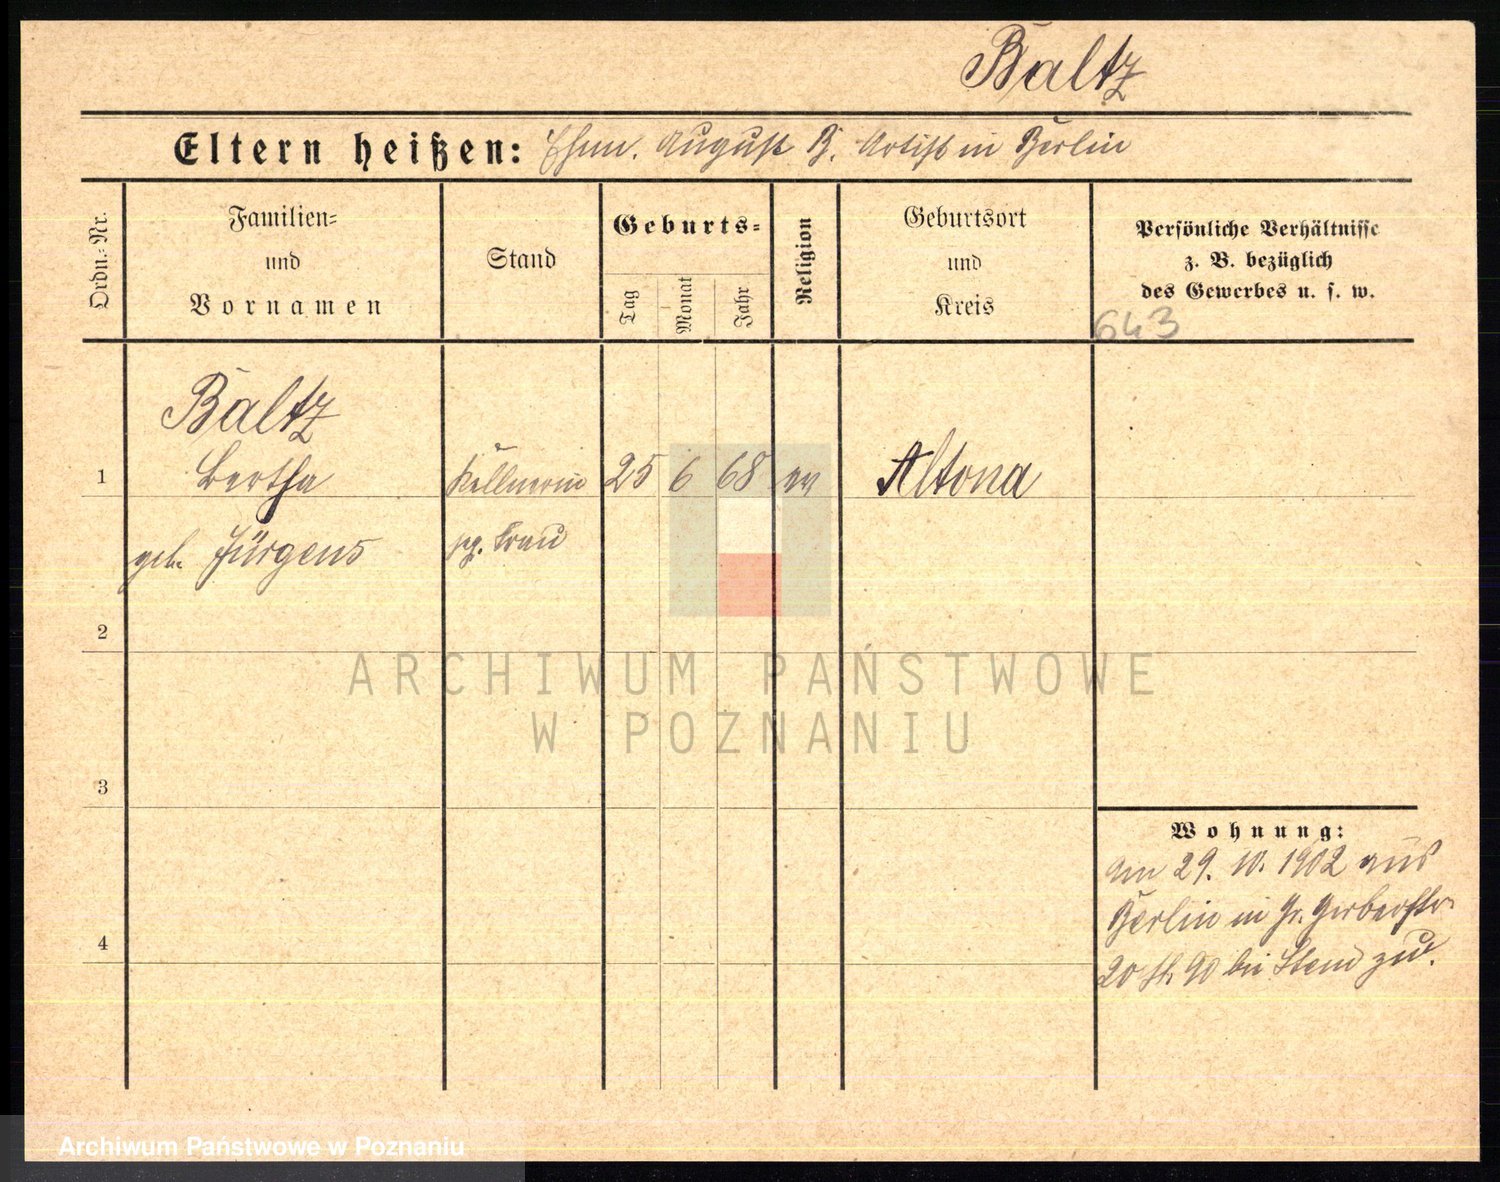 Baltz
Eltern heißen: Ehem. August B. Artist in Berlin
Ordn.-Nr.
Familien-
und
Vornamen
Stand
Geburts-
Tag
Monat
Jahr
Religion
Geburtsort
und
Kreis
Persönliche Verhältnisse
z. B. bezüglich
des Gewerbes u. s. w.
643
Baltz
1 Bertha Kellnerin 25 6 68 ev Altona
geb. Jürgens Frau
2
ARCHIWUM PAŃSTWOWE
W POZNANIU
3
Wohnung:
am 29. 10. 1902 aus
Berlin in Gr. Gerberstr.
4
20 bei zu.
Archiwum Państwowe w Poznaniu